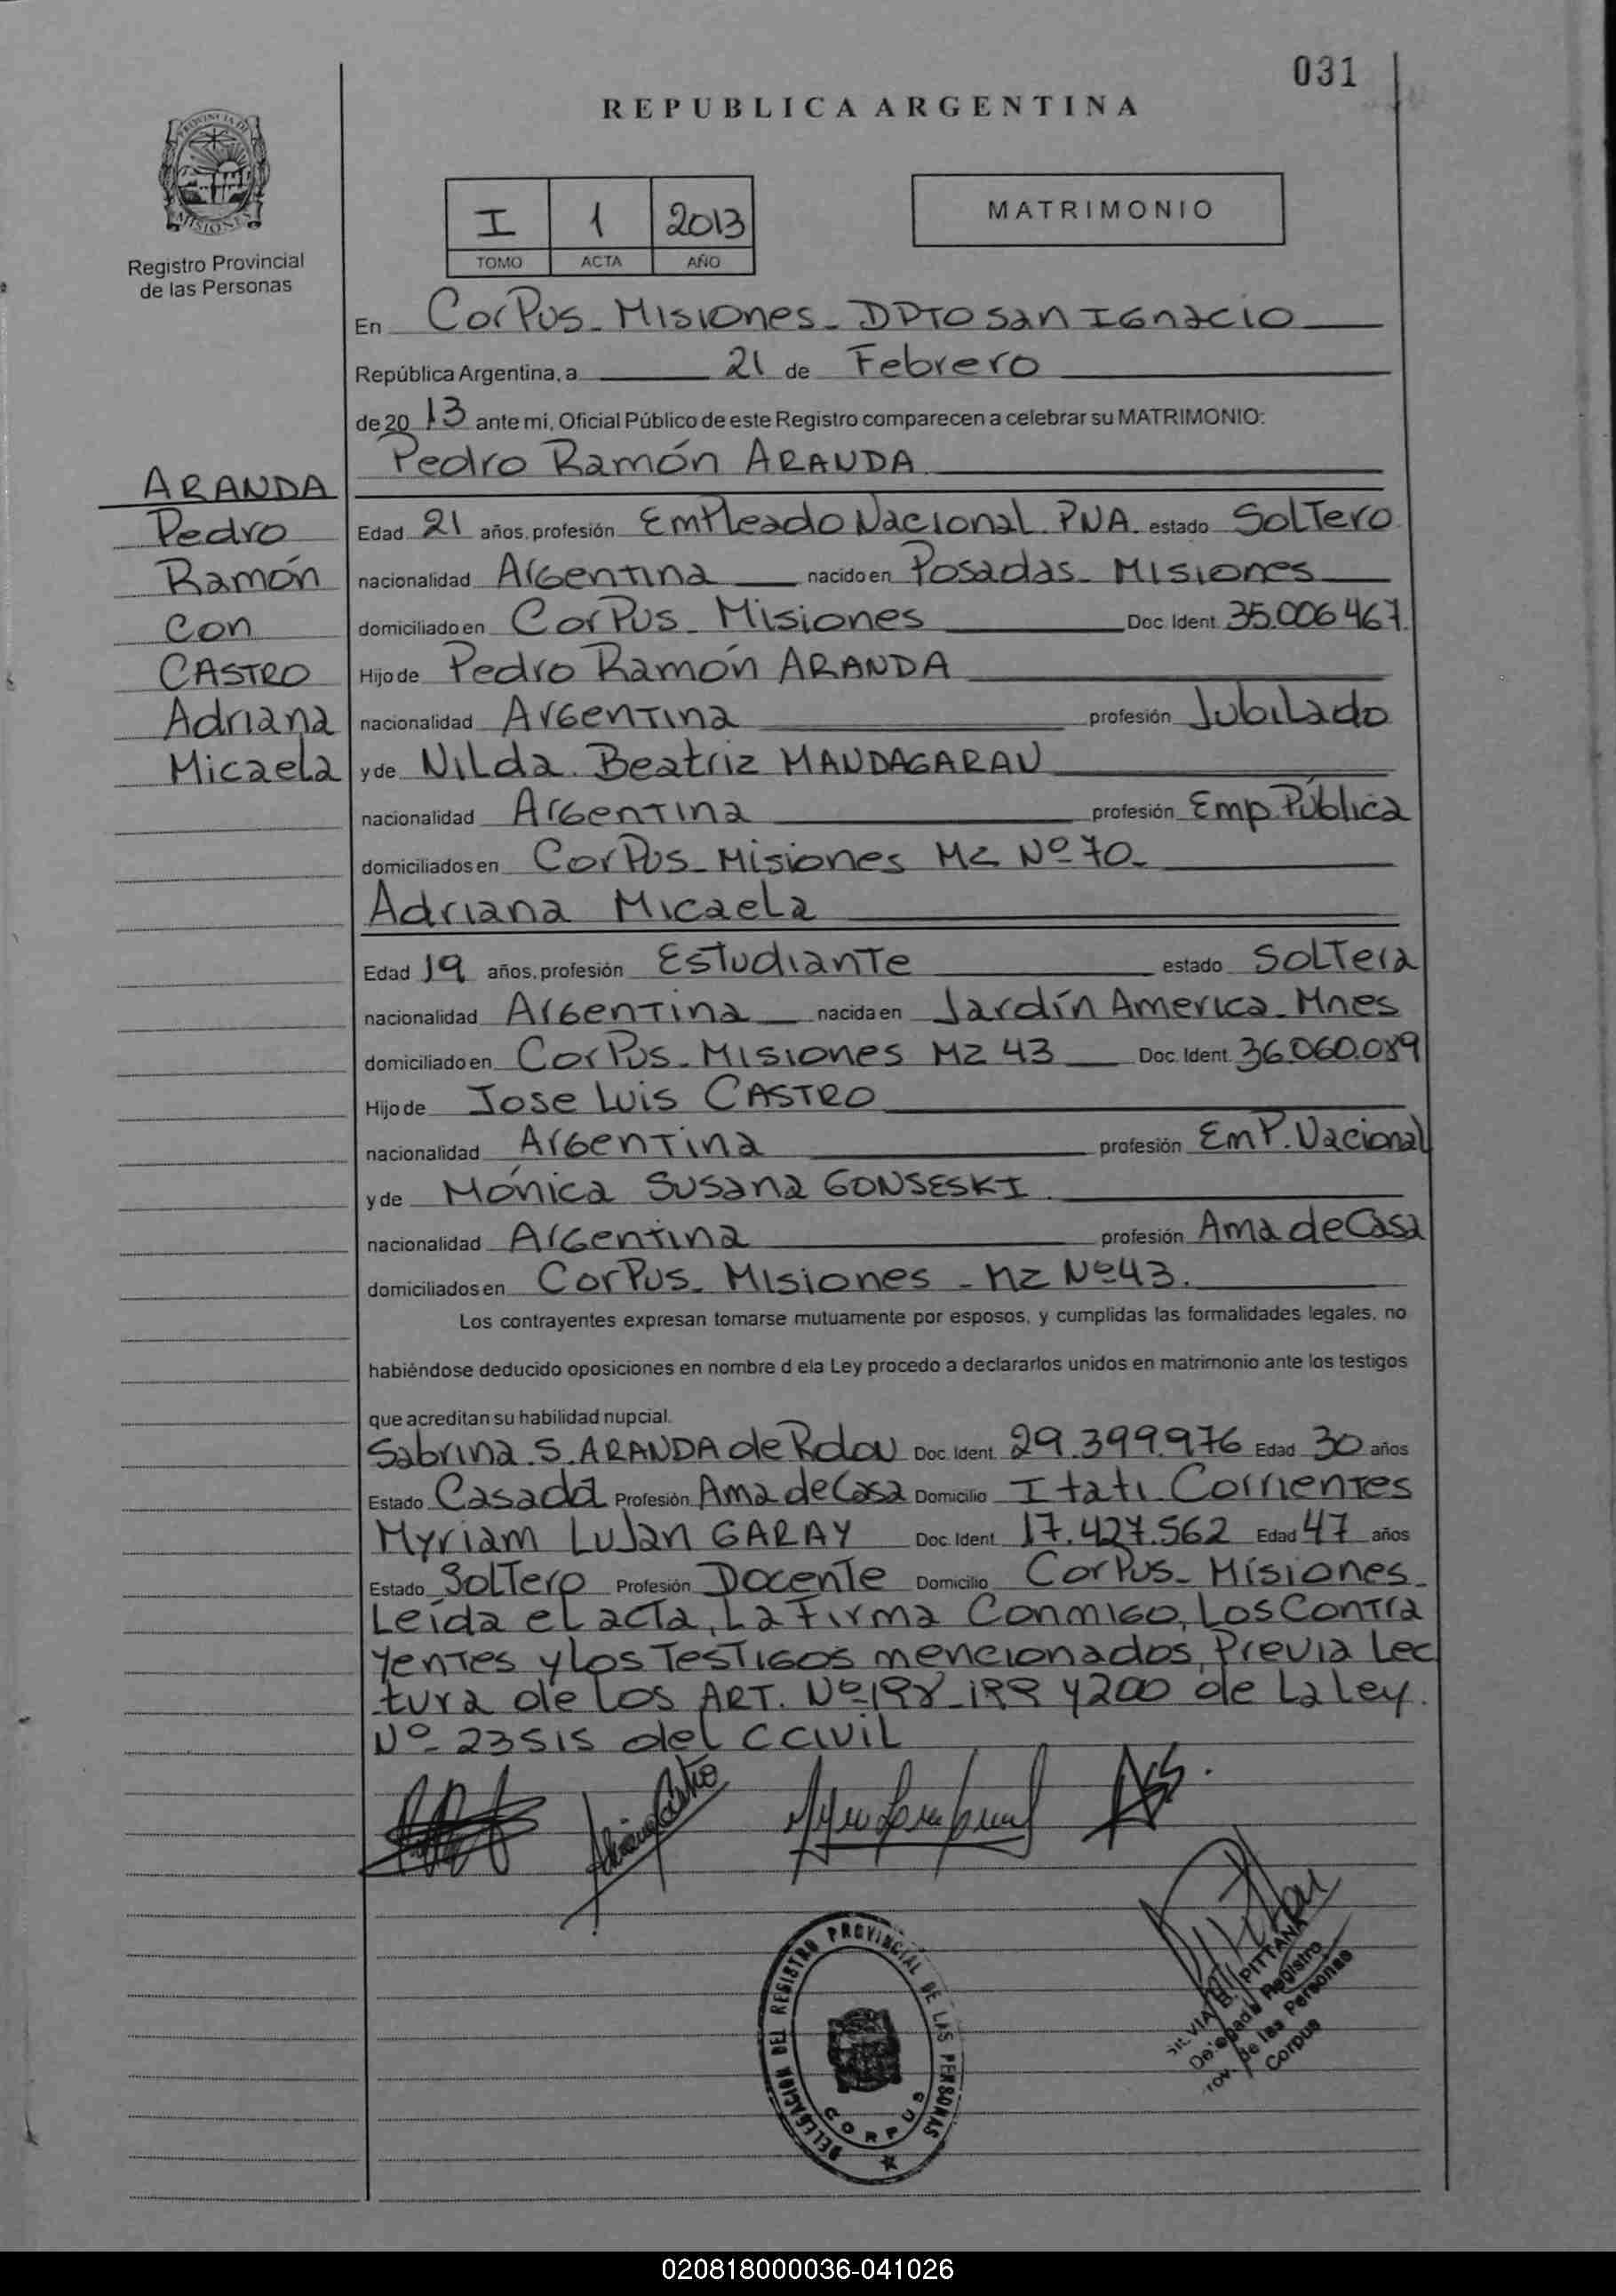 031
REPUBLICA ARGENTINA
PROVINCIA DE
MISIONES
Registro Provincial
de las Personas
I 1 2013
TOMO ACTA AÑO
MATRIMONIO
En CorPus - Misiones - DPTO San IGnacio
República Argentina, a 21 de Febrero
de 20 13 ante mi, Oficial Público de este Registro comparecen a celebrar su MATRIMONIO:
Pedro Ramón ARANDA
ARANDA
Pedro
Ramón
Con
CASTRO
Adriana
Micaela
Edad 21 años, profesión EmPleado Nacional PNA. estado SolTero
nacionalidad ArGentina nacido en Posadas - Misiones
domiciliado en CorPus - Misiones Doc. Ident. 35.006467.
Hijo de Pedro Ramón ARANDA
nacionalidad ArGenTina profesión Jubilado
y de Nilda. Beatriz MANDAGARAN
nacionalidad ArGenTina profesión Emp. Pública
domiciliados en CorPus - Misiones Mz Nº 70 -
Adriana Micaela
Edad 19 años, profesión EsTudianTe estado SolTera
nacionalidad ArGenTina nacida en Jardín America - Mnes
domiciliado en CorPus - Misiones Mz 43 Doc. Ident. 36.060.089
Hijo de Jose Luis CASTRO
nacionalidad ArGenTina profesión EmP. Nacional
y de Mónica Susana GONSESKI.
nacionalidad ArGentina profesión Ama de Casa
domiciliados en CorPus - Misiones - Mz Nº 43.
Los contrayentes expresan tomarse mutuamente por esposos, y cumplidas las formalidades legales, no
habiéndose deducido oposiciones en nombre d ela Ley procedo a declararlos unidos en matrimonio ante los testigos
que acreditan su habilidad nupcial.
Sabrina. S. ARANDA de Doc. Ident. 29.399.976 Edad 30 años
Estado Casada Profesión Ama de Casa Domicilio Itati Corrientes
Myriam Lujan GARAY Doc. Ident. 17.427.562 Edad 47 años
Estado SolTero Profesión DocenTe Domicilio CorPus - Misiones -
Leída el acTa, La Firma ConmiGo, Los ConTra
yenTes y los TesTiGos mencionados, Previa Lec
tura de los ART. Nº 198 - 199 y 200 de La Ley.
Nº 23515 del C Civil
Adriana Castro
DELEGACION DEL REGISTRO PROVINCIAL DE LAS PERSONAS
CORPUS
SILVIA B. PITTANA
Delegada Registro
rov. de las Personas
Corpus
020818000036-041026